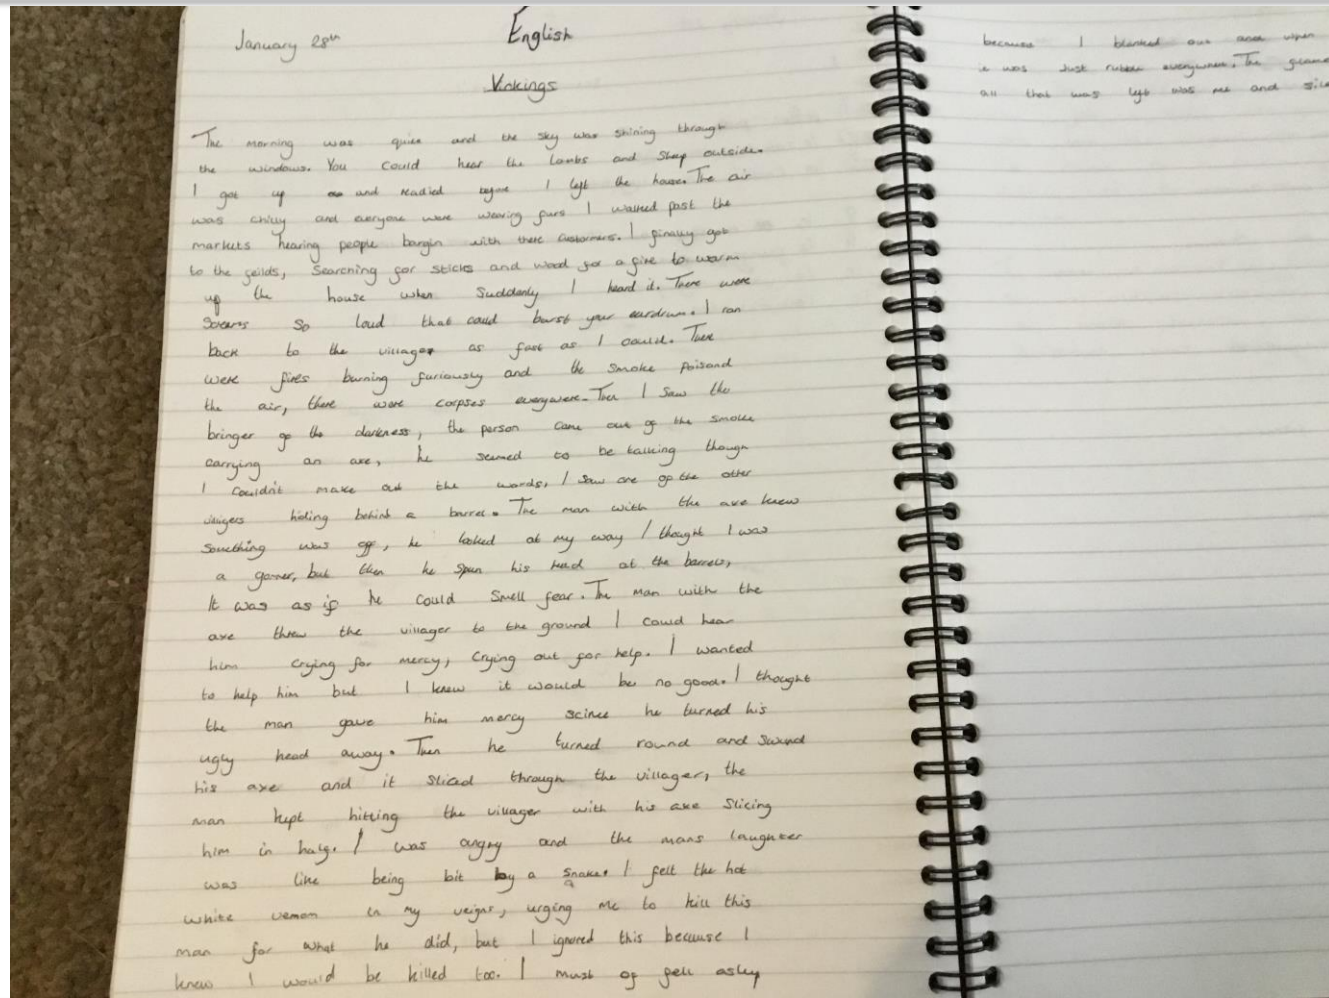 January 28th
English
Vickings
The morning was quite and the sky was shining through
the windows. You could hear the lambs and sheep outside.
I got up and readied before I left the house. The air
was chilly and everyone were wearing furs I walked past the
markets hearing people bargin with there customers. I finally got
to the feilds, Searching for sticks and wood for a fire to warm
up the house when Suddenly I heard it. There were
so loud that could burst your eardrum. I ran
back to the village as fast as I could. There
were fires burning furiously and the smoke poisond
the air, there were corpses everywere. Then I saw the
bringer of the darkness, the person came out of the smoke
carrying an axe, he seemed to be talking though
I couldn't make out the words, I saw one of the other
hiding behind a barrel. The man with the axe knew
something was off, he looked at my way I thought I was
a goner, but then he spun his head at the barrels,
It was as if he could smell fear. The man with the
axe threw the villager to the ground I could hear
him crying for mercy, crying out for help. I wanted
to help him but I knew it would be no good. I thought
the man gave him mercy scince he turned his
ugly head away. Then he turned round and swund
his axe and it sliced through the villager, the
man kept hitting the villager with his axe slicing
him in half. I was angry and the mans laughter
was like being bit by a snake. I felt the hot
white vemon in my veigns, urging me to kill this
man for what he did, but I ignored this because I
knew I would be killed too. I must of fell asleep
because I blanked out and when
it was Just everywhere. The
all that was left was me and